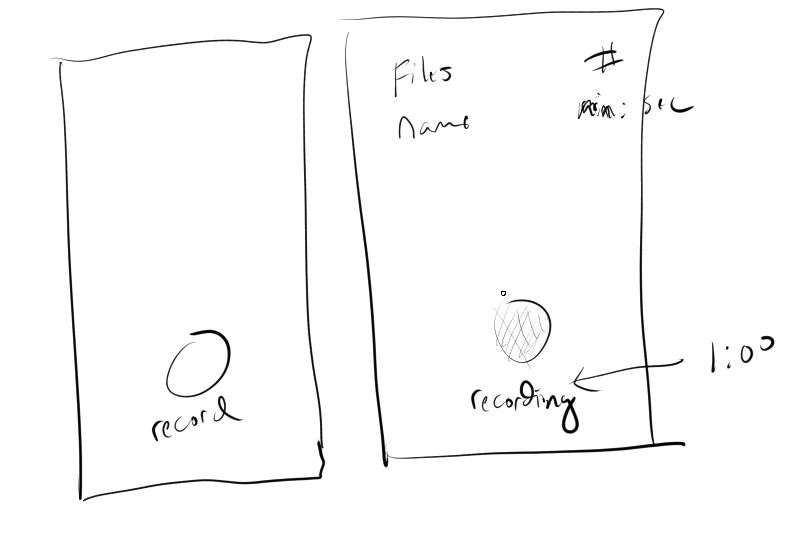 record
Files #
name min: sec
recording
1:00